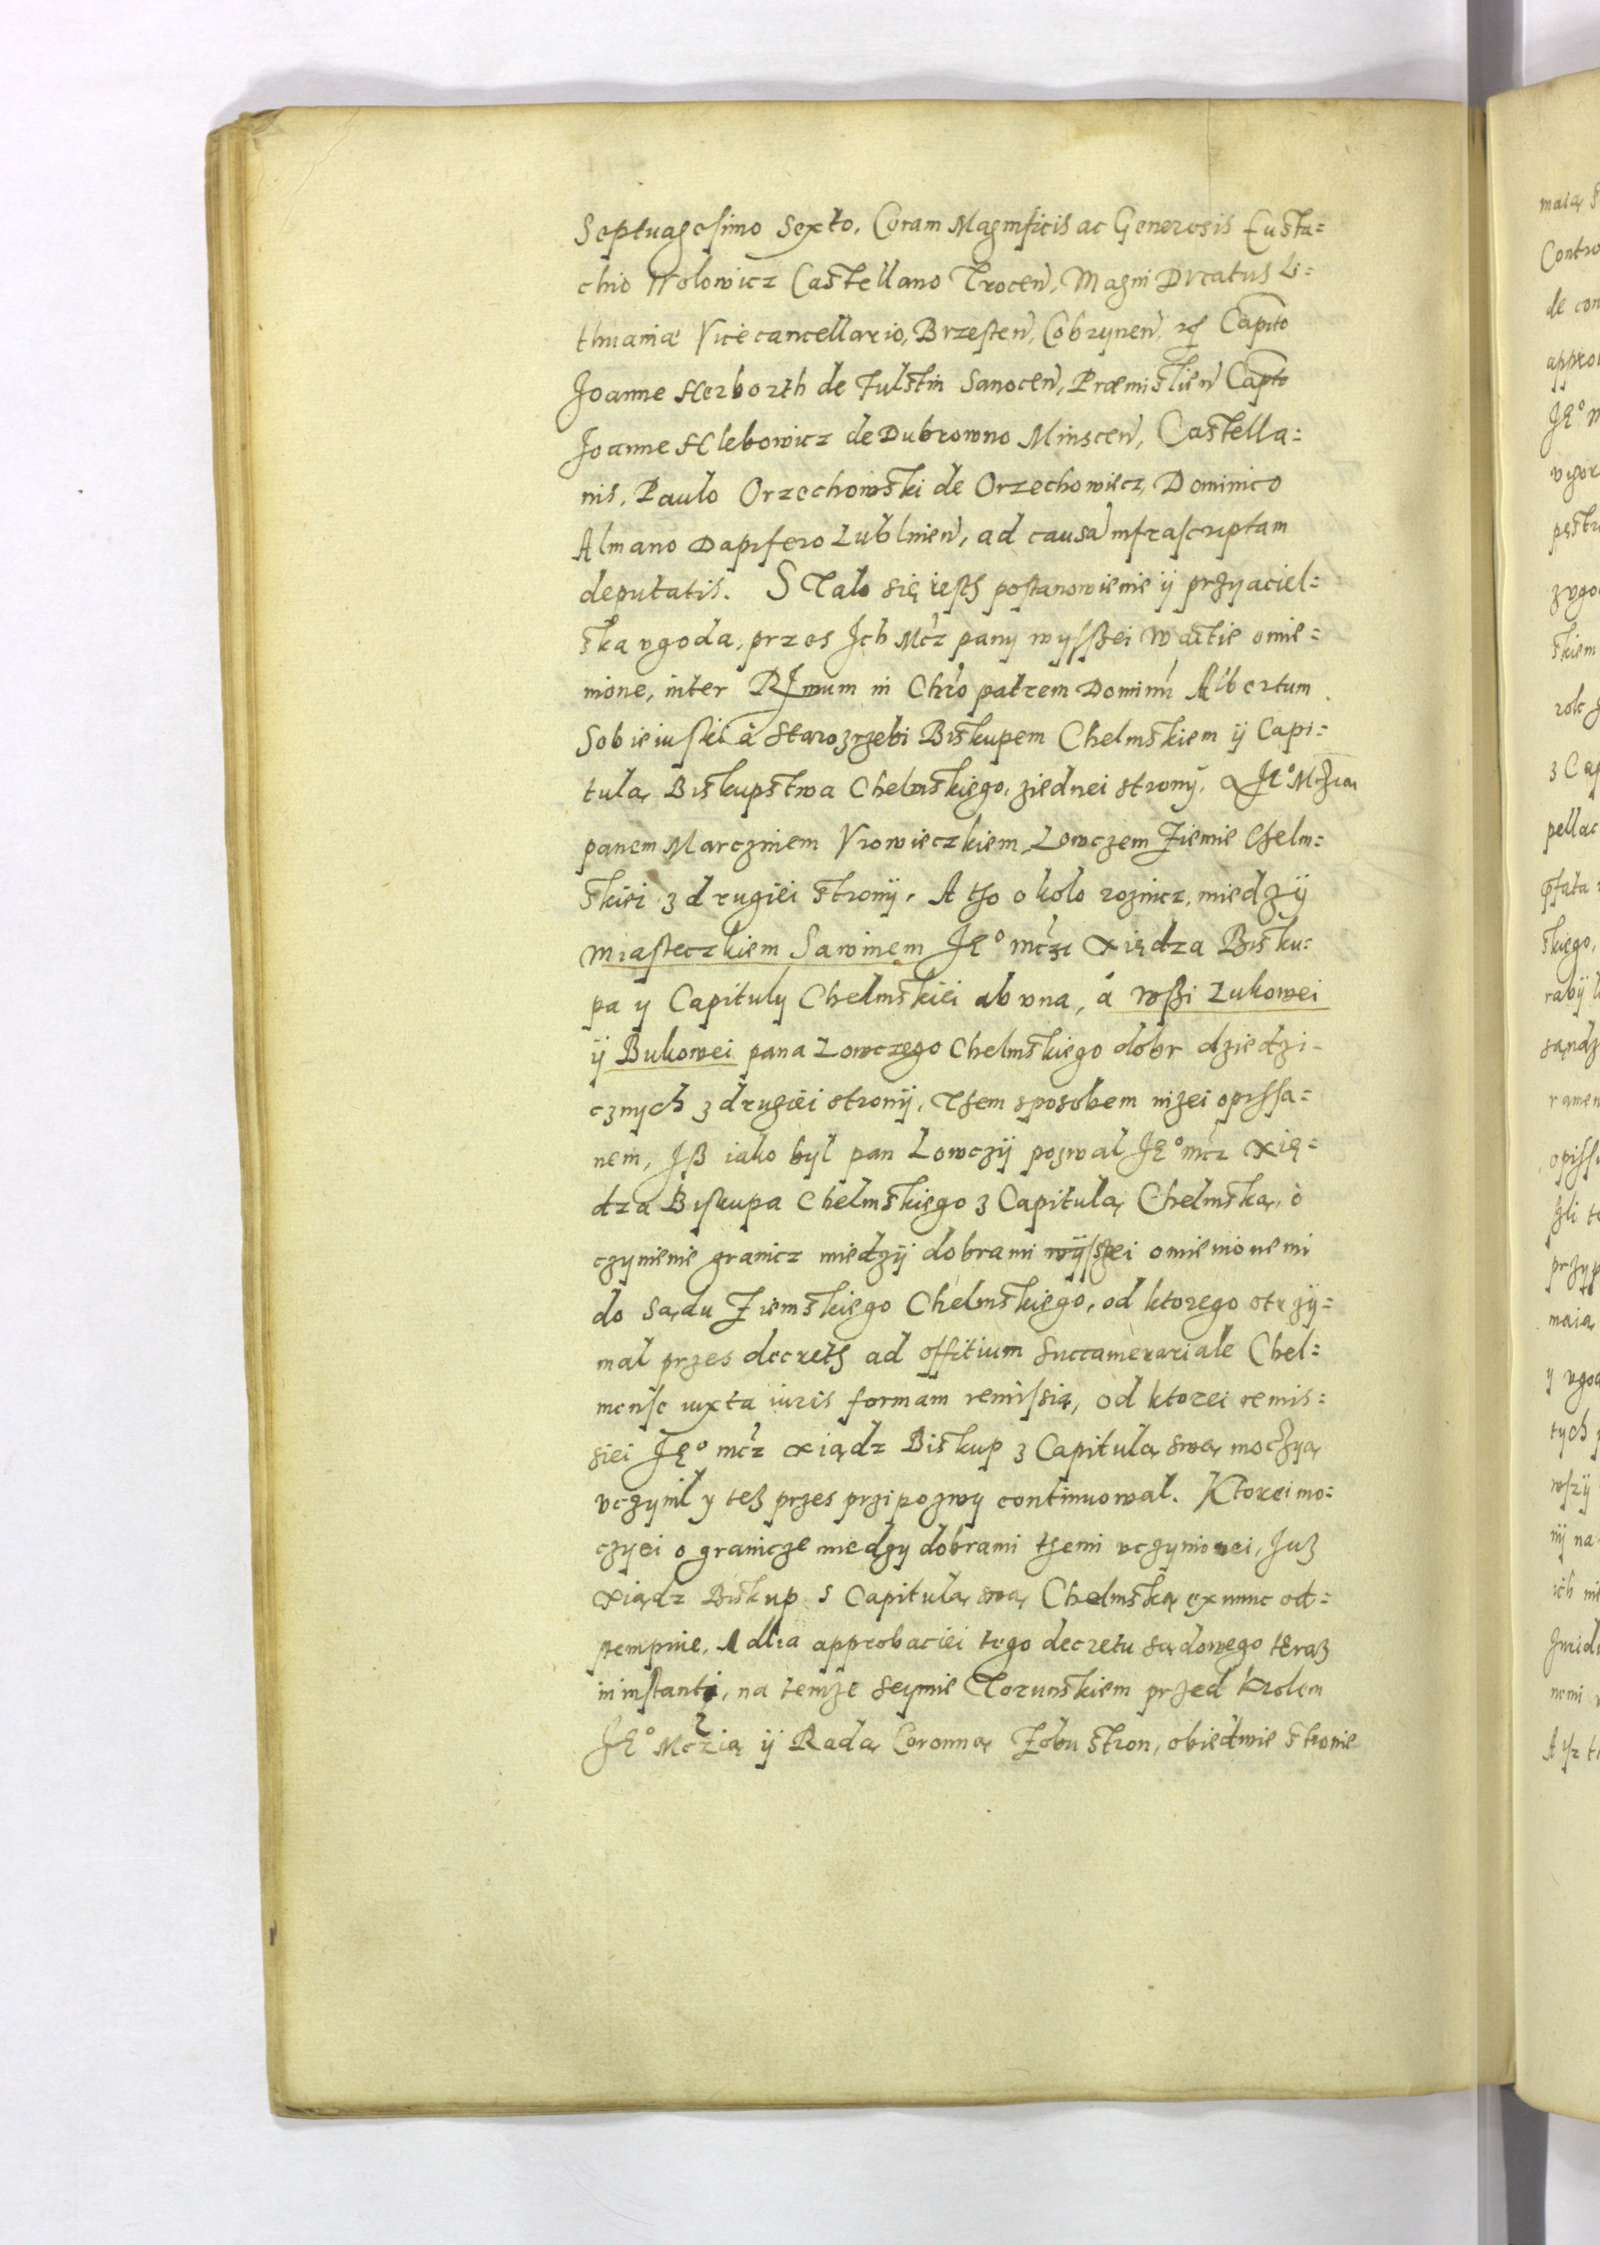 Septuagesimo Sexto, Coram Magnificis ac Generosis Eusta=
chio Wolowicz Castellano Trocen, Magni Ducatus Li=
thuaniæ Vicecancellario, Brzesten, Cobrynen, Capito
Joanne Herborth de Fulstin Sanocen, Præmislien Capto
Joanne Hlebowicz de Dubrowno Minscen, Castella=
nis, Paulo Orzechowski de Orzechowicz, Dominico
Almano Dapifero Lublinen, ad causa infrascriptam
deputatis. STalo się iesth postanowienie ÿ przyaciel=
ska vgoda, przes Jch Mcz pany wyssßei w datie omie=
nione, inter Rmum in Chro patrem Dominu Albertum
Sobieiuski à Starozrzebi Biskupem Chelmskiem ÿ Capi=
tulą Biskupstwa Chelmskiego, ziednei strony, a Je° Mczią
panem Marczinem Vrowieczkiem Lowczem Ziemie Chelm=
skiei z drugiei stronÿ. A tho okolo roznicz, miedzÿ
miasteczkiem Sawinem Je° mczi xiędza Bisku=
pa y Capituly Chelmskiei ab vna, á wßi Lukowei
ÿ Bukowei pana Lowczego Chelmskiego dobr dziedzi-
cznych z drugiei stronÿ, Them sposobem nizei opissa=
nem, Jß iako byl pan Lowczÿ pozwal Je° mcz xię=
dza Biskupa Chelmskiego z Capitulą Chelmską, o
czynienie granicz miedzÿ dobrami wÿsszei omienionemi
do Sądu Ziemskiego Chelmskiego, od ktorego otrzÿ=
mal przes decreth ad offitium Succamerariale Chel=
mense iuxta iuris formam remissią, od ktorei remis=
siei Je° mcz xiądz Biskup z Capitulą swą moczÿą
vczynil y teß przes przipozwy continuowal. Ktorei mo=
czyei o granicze miedzy dobrami themi vczynionei, Juß
xiądz Biskup s Capitulą swą Chelmską ex nunc od=
stempuie, A dlia approbaciei tego decretu sądowego teraß
in instanti, na temze Seymie Torunskiem przed Krolem
Je° Mczią ÿ Radą Coronną Zobu stron, obiedwie stronie